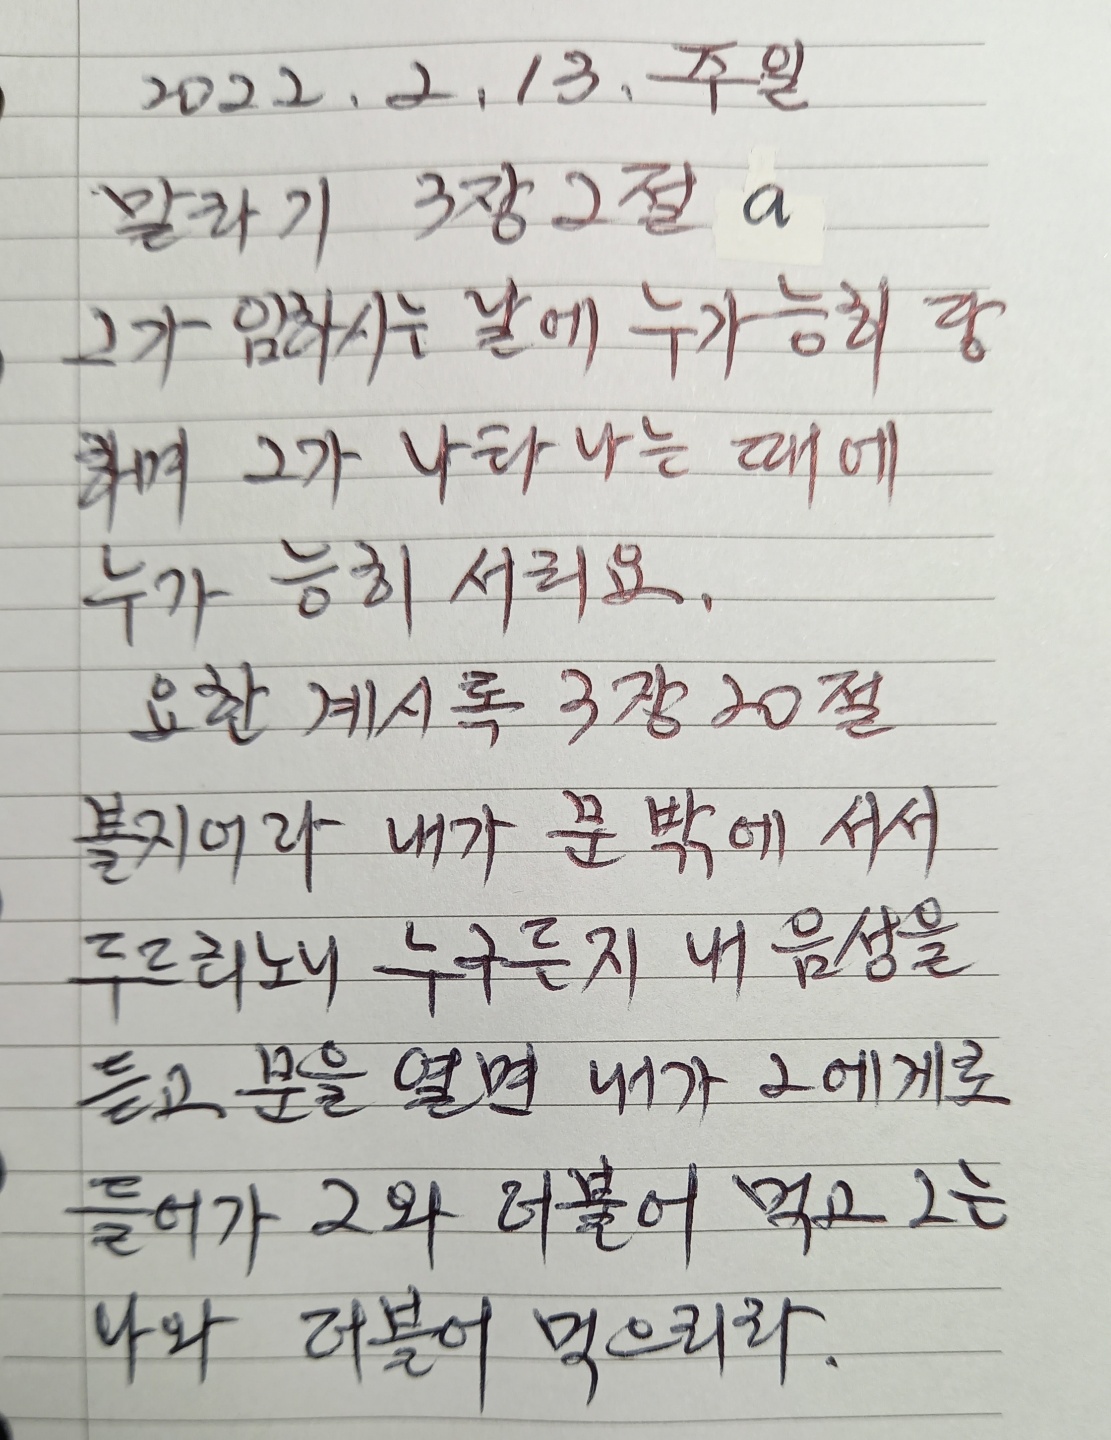 2022. 2. 13. 주일
말라기 3장 2절 a
그가 임하시는 날에 누가 능히 당
하며 그가 나타나는 때에
누가 능히 서리요.
요한 계시록 3장 20절
볼지어라 내가 문 밖에 서서
두드리노니 누구든지 내 음성을
듣고 문을 열면 내가 그에게로
들어가 그와 더불어 먹고 그는
나와 더불어 먹으리라.